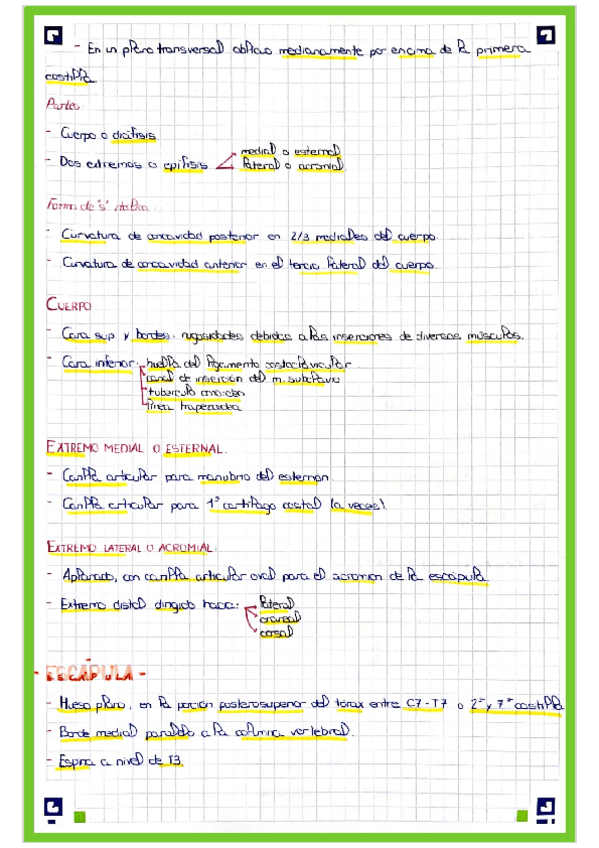 - En un plano transversal oblicuo medianamente por encima de la primera
costilla
Partes
- Cuerpo o diáfisis
- Dos extremos o epífisis
medial o esternal
lateral o acromial
Forma de "s" itálica
- Curvatura de concavidad posterior en 2/3 mediales del cuerpo.
- Curvatura de concavidad anterior en el tercio lateral del cuerpo.
CUERPO
- Cara sup y bordes: rugosidades debidas a las inserciones de diversos músculos.
- Cara inferior: huella del ligamento costoclavicular
canal de inserción del m. subclavio
tubérculo conoideo
línea trapezoidea
EXTREMO MEDIAL O ESTERNAL.
- Carilla articular para manubrio del esternón
- Carilla articular para 1º cartílago costal (a veces).
EXTREMO LATERAL O ACROMIAL.
- Aplanado, con carilla articular oval para el acromion de la escápula.
- Extremo distal dirigido hacia: lateral
craneal
dorsal
- ESCÁPULA -
- Hueso plano, en la porción posterosuperior del tórax entre C7-T7 o 2ª y 7ª costilla
- Borde medial paralelo a la columna vertebral.
- Espina a nivel de T3.